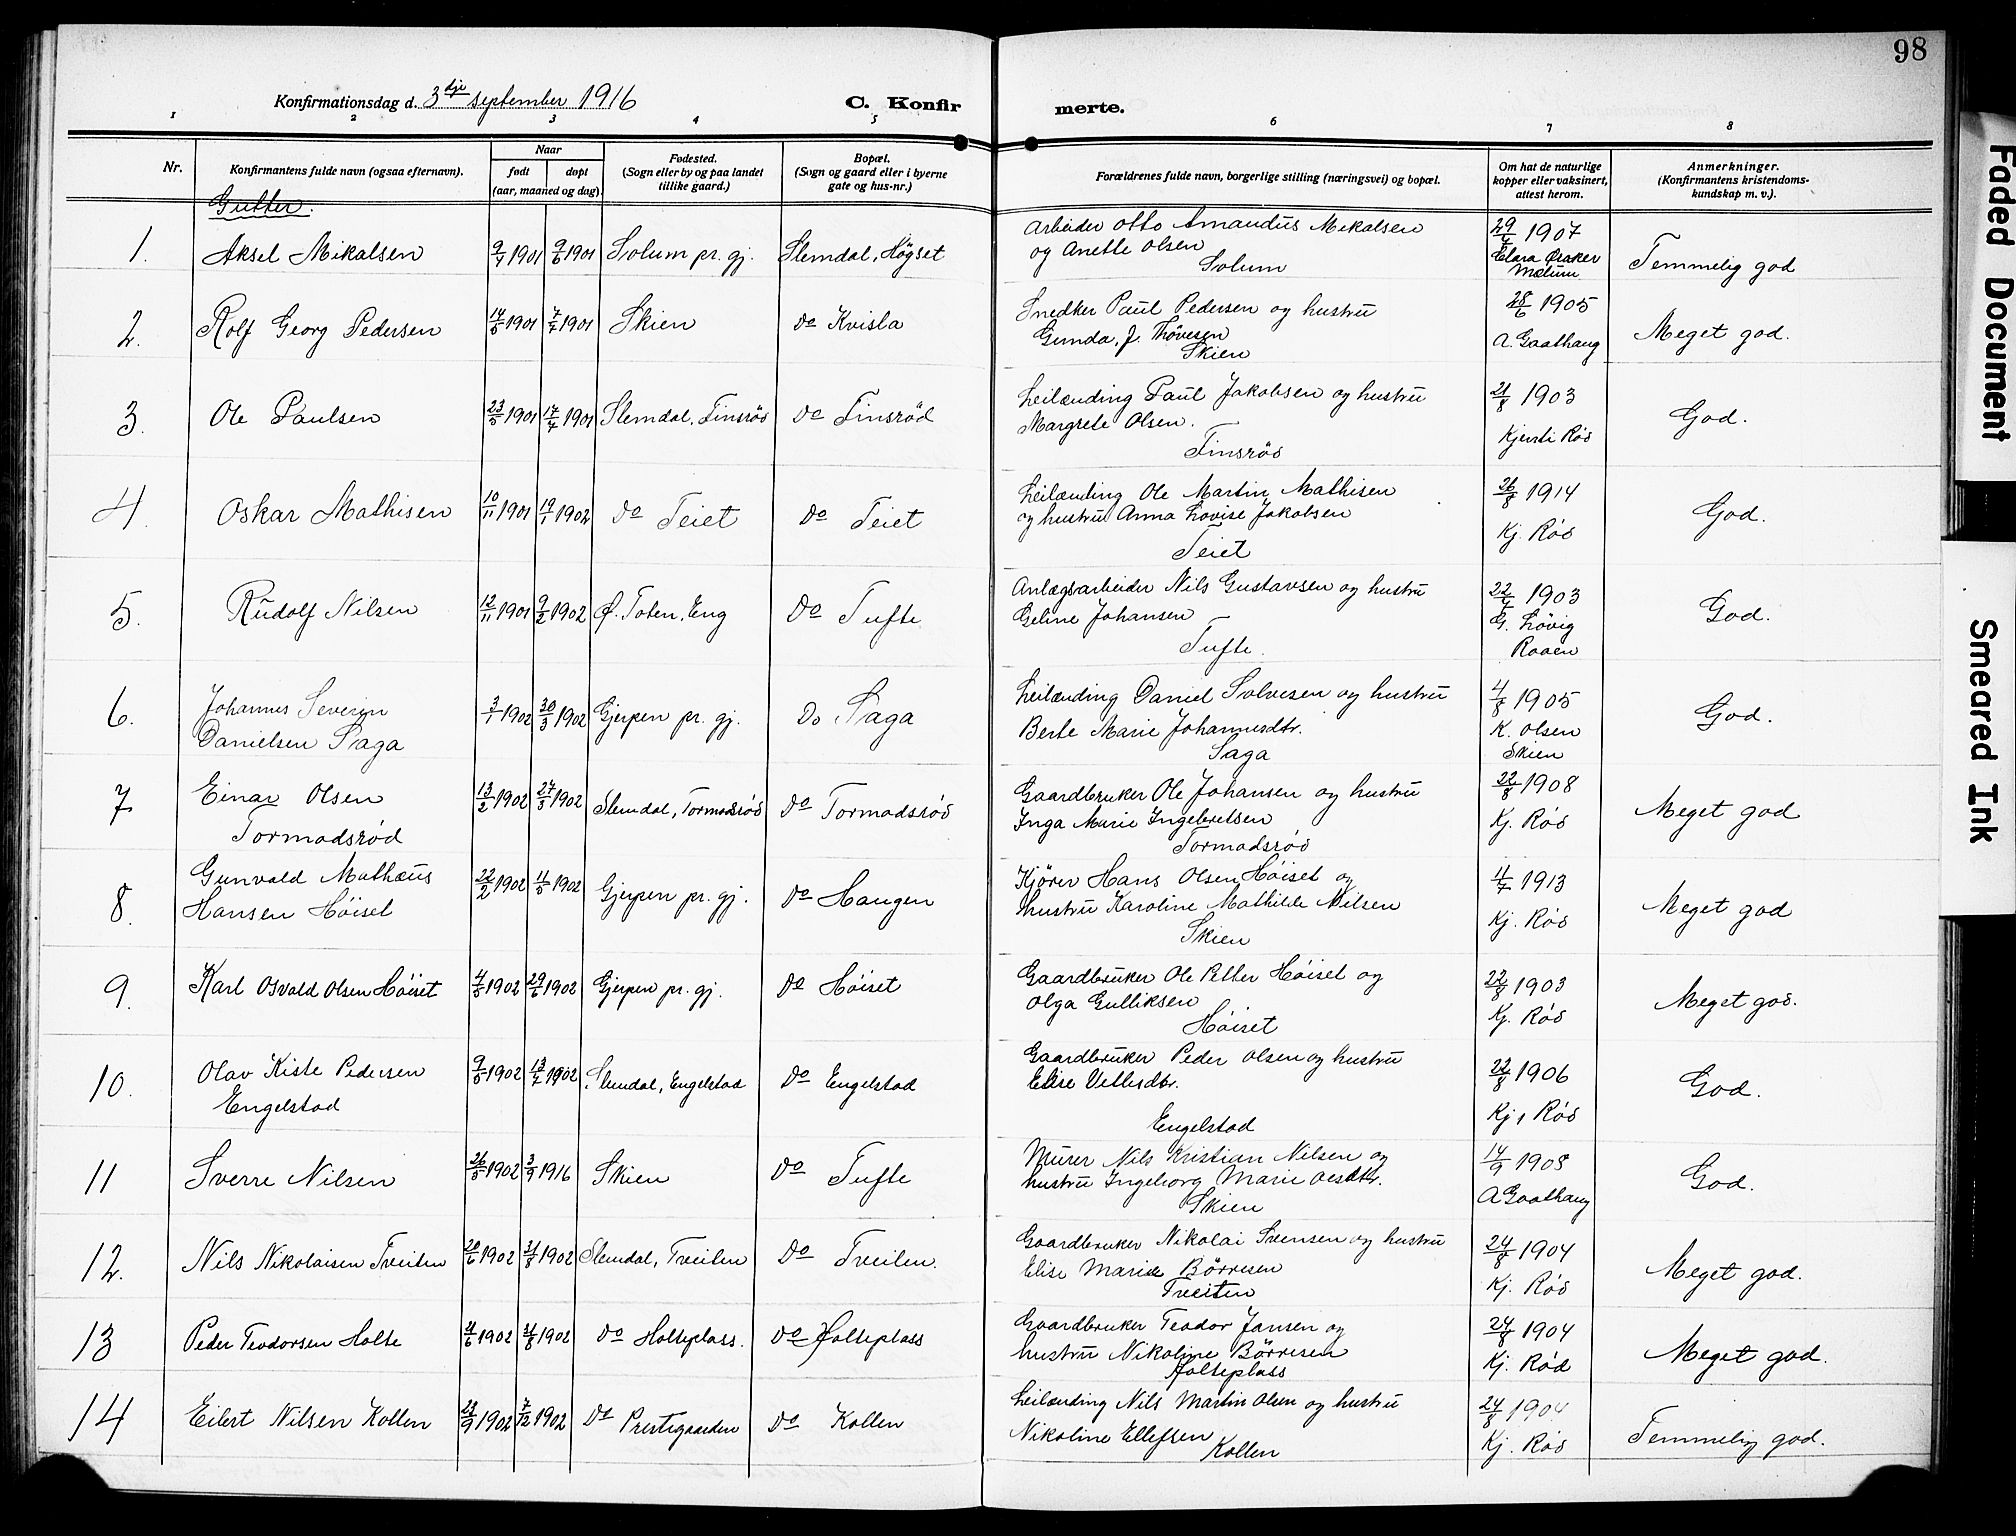 98
Konfirmationsdag d. 3dje september 1916
C. Konfir merte.
1 2 3 4 5 6 7 8
Nr.
Konfirmantens fulde navn (ogsaa efternavn).
Naar
født døpt
(aar, maaned og dag)
Fødested.
(Sogn eller by og paa landet
tillike gaard.)
Bopæl.
(Sogn og gaard eller i byerne
gate og hus-nr.)
Forældrenes fulde navn, borgerlige stilling (næringsvei) og bopæl.
Om hat de naturlige
kopper eller vaksinert,
attest herom.
Anmerkninger.
(Konfirmantens kristendoms-
kundskap m. v.).
Gutter.
1. Aksel Mikalsen 9/4 1901 9/6 1901 Solum pr. gj. Slemdal, Høgset
Arbeider Otto Amandus Mikalsen
og Anette Olsen
Solum
29/4 1907
Clara Øraker
Mælum
Temmelig god
2. Rolf Georg Pedersen 14/5 1901 7/7 1901 Skien Do Kvisla
Snedker Paul Pedersen og hustru
Gunda, J. Thøvesen
Skien
28/6 1905
A. Gaathaug
Meget god.
3. Ole Paulsen 23/5 1901 17/7 1901 Slemdal, Finsrød Do Finsrød
Leilænding Paul Jakobsen og hustru
Margrete Olsen.
Finsrød
21/8 1903
Kjersti Rød
God.
4. Oskar Mathisen 10/11 1901 19/1 1902 Do Teiet Do Teiet
Leilænding Ole Martin Mathisen
og hustru Anna Lovise Jakobsen
Teiet
26/8 1914
Kj. Rød
God.
5. Rudolf Nilsen 12/11 1901 9/2 1902 Ø. Toten, Eng Do Tufte
Anlægsarbeider Nils Gustavsen og hustru
Geline Johansen
Tufte.
22/4 1903
G. Løvig
Raaen
God.
6. Johannes Severin
Danielsen Saga
3/1 1902 30/3 1902 Gjerpen pr. gj. Do Saga
Leilænding Daniel Solvesen og hustru
Berte Marie Johannesdtr.
Saga
4/8 1905
K. Olsen
Skien
God.
7 Einar Olsen
Tormodsrød
13/2 1902 27/3 1902 Slemdal, Tormodsrød Do Tormodsrød
Gaardbruker Ole Johansen og hustru
Inga Marie Ingebretsen
Tormodsrød
22/8 1908
Kj. Rød
Meget god
8. Gunvald Mathæus
Hansen Høiset
22/2 1902 11/5 1902 Gjerpen pr. gj. Do Haugen
Kjører Hans Olsen Høiset og
hustru Karoline Mathilde Nilsen
Skien
4/7 1913
Kj. Rød
Meget god
9. Karl Osvald Olsen Høiset 4/5 1902 29/6 1902 Gjerpen pr. gj. Do Høiset
Gaardbruker Ole Petter Høiset og
Olga Gulliksen
Høiset
22/8 1903
Kj. Rød
Meget god.
10. Olav Kiste Pedersen
Engelstad
9/5 1902 13/7 1902 Slemdal, Engelstad Do Engelstad
Gaardbruker Peder Olsen og hustru
Elise Vetlesdtr.
Engelstad
22/8 1906
Kj, Rød
God.
11 Sverre Nilsen 26/5 1902 3/9 1916 Skien Do Tufte
Murer Nils Kristian Nilsen og
hustru Ingeborg Marie
Skien
14/9 1908
A Gaathaug
God.
12. Nils Nikolaisen Treiten 20/6 1902 31/8 1902 Slemdal, Treiten Do Treiten.
Gaardbruker Nikolai Svensen og hustru
Elise Marie Börresen
Treiten
24/8 1904
Kj. Rød
Meget god.
13 Peder Teodorsen Holte 21/6 1902 31/8 1902 Do Holteplass. Do Holteplass
Gaardbruker Teodor Jansen og
hustru Nikoline Börresen
Holteplass
24/8 1904
Kj. Rød
Meget god.
14 Eilert Nilsen Kollen 23/9 1902 7/12 1902 Do Prestegaarden Do Kollen
Leilænding Nils Martin Olsen og hustru
Nikoline Ellefsen
Kollen
24/8 1904
Kj. Rød
Temmelig god.
Faded Document
Smeared Ink